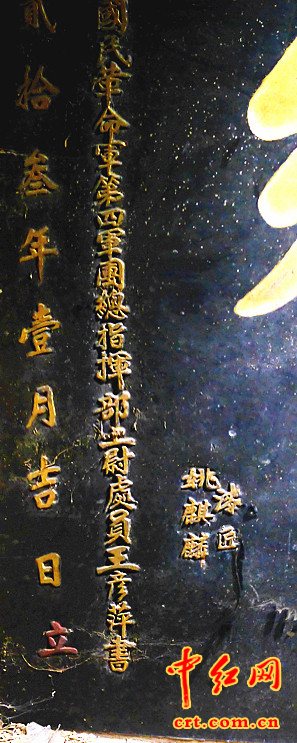 漆匠
姚麒麟
國民革命軍第四軍團總指揮部上尉處員王彦萍書
貳拾叁年壹月吉日立
中红网
crt.com.cn